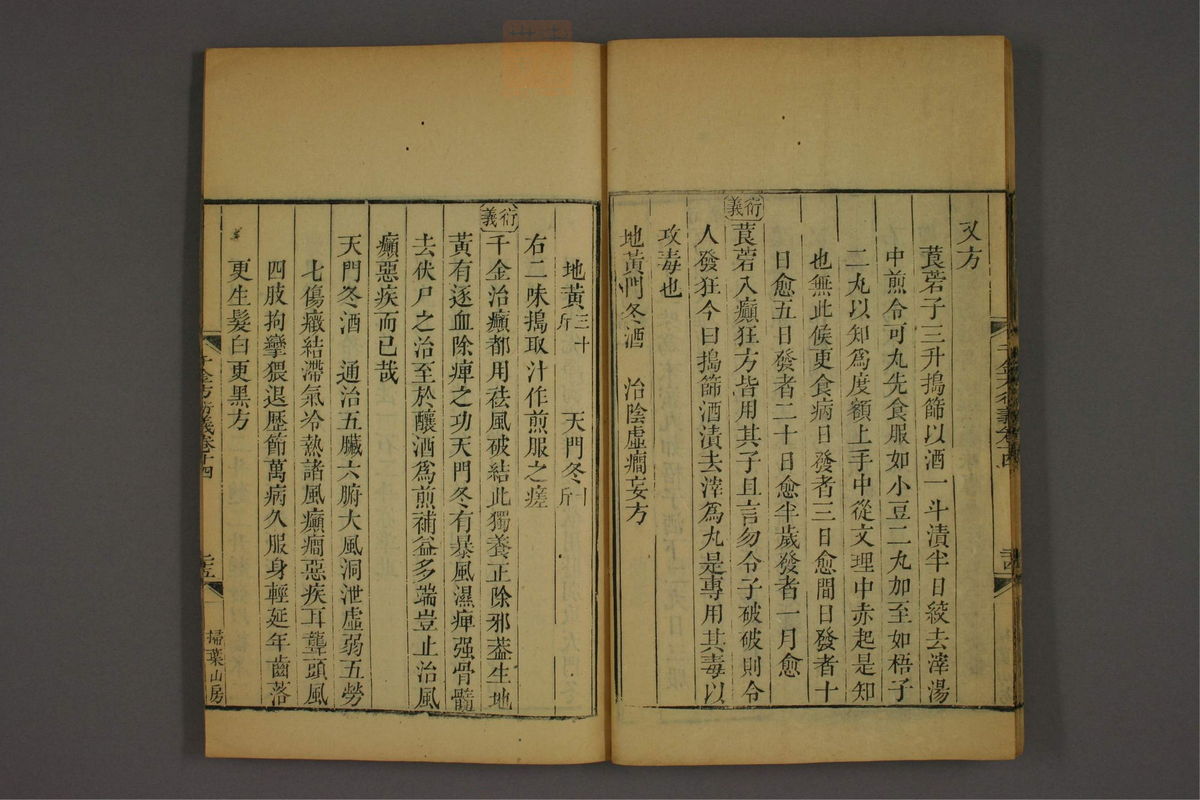 又方
莨菪子三升搗篩以酒一斗漬半日絞去滓湯
中煎令可丸先食服如小豆二丸加至如梧子
二丸以知爲度額上手中從文理中赤起是知
也無此候更食病日發者三日愈間日發者十
日愈五日發者二十日愈半歲發者一月愈
衍義 莨菪入癲狂方皆用其子且言勿令子破破則令
人發狂今曰搗篩酒漬去滓爲丸是專用其毒以
攻毒也
地黃門冬酒 治陰虛癎妄方
地黃三十斤 天門冬十斤
右二味搗取汁作煎服之瘥
衍義 千金治癲都用祛風破結此獨養正除邪葢生地
黃有逐血除痺之功天門冬有暴風濕痺强骨髓
去伏尸之治至於釀酒爲煎補益多端豈止治風
癲惡疾而已哉
天門冬酒 通治五臟六腑大風洞泄虛弱五勞
七傷癥結滯氣冷熱諸風癲癎惡疾耳聾頭風
四肢拘攣猥退歷節萬病久服身輕延年齒落
更生髮白更黑方
千金方衍義卷十四
二五
掃葉山房